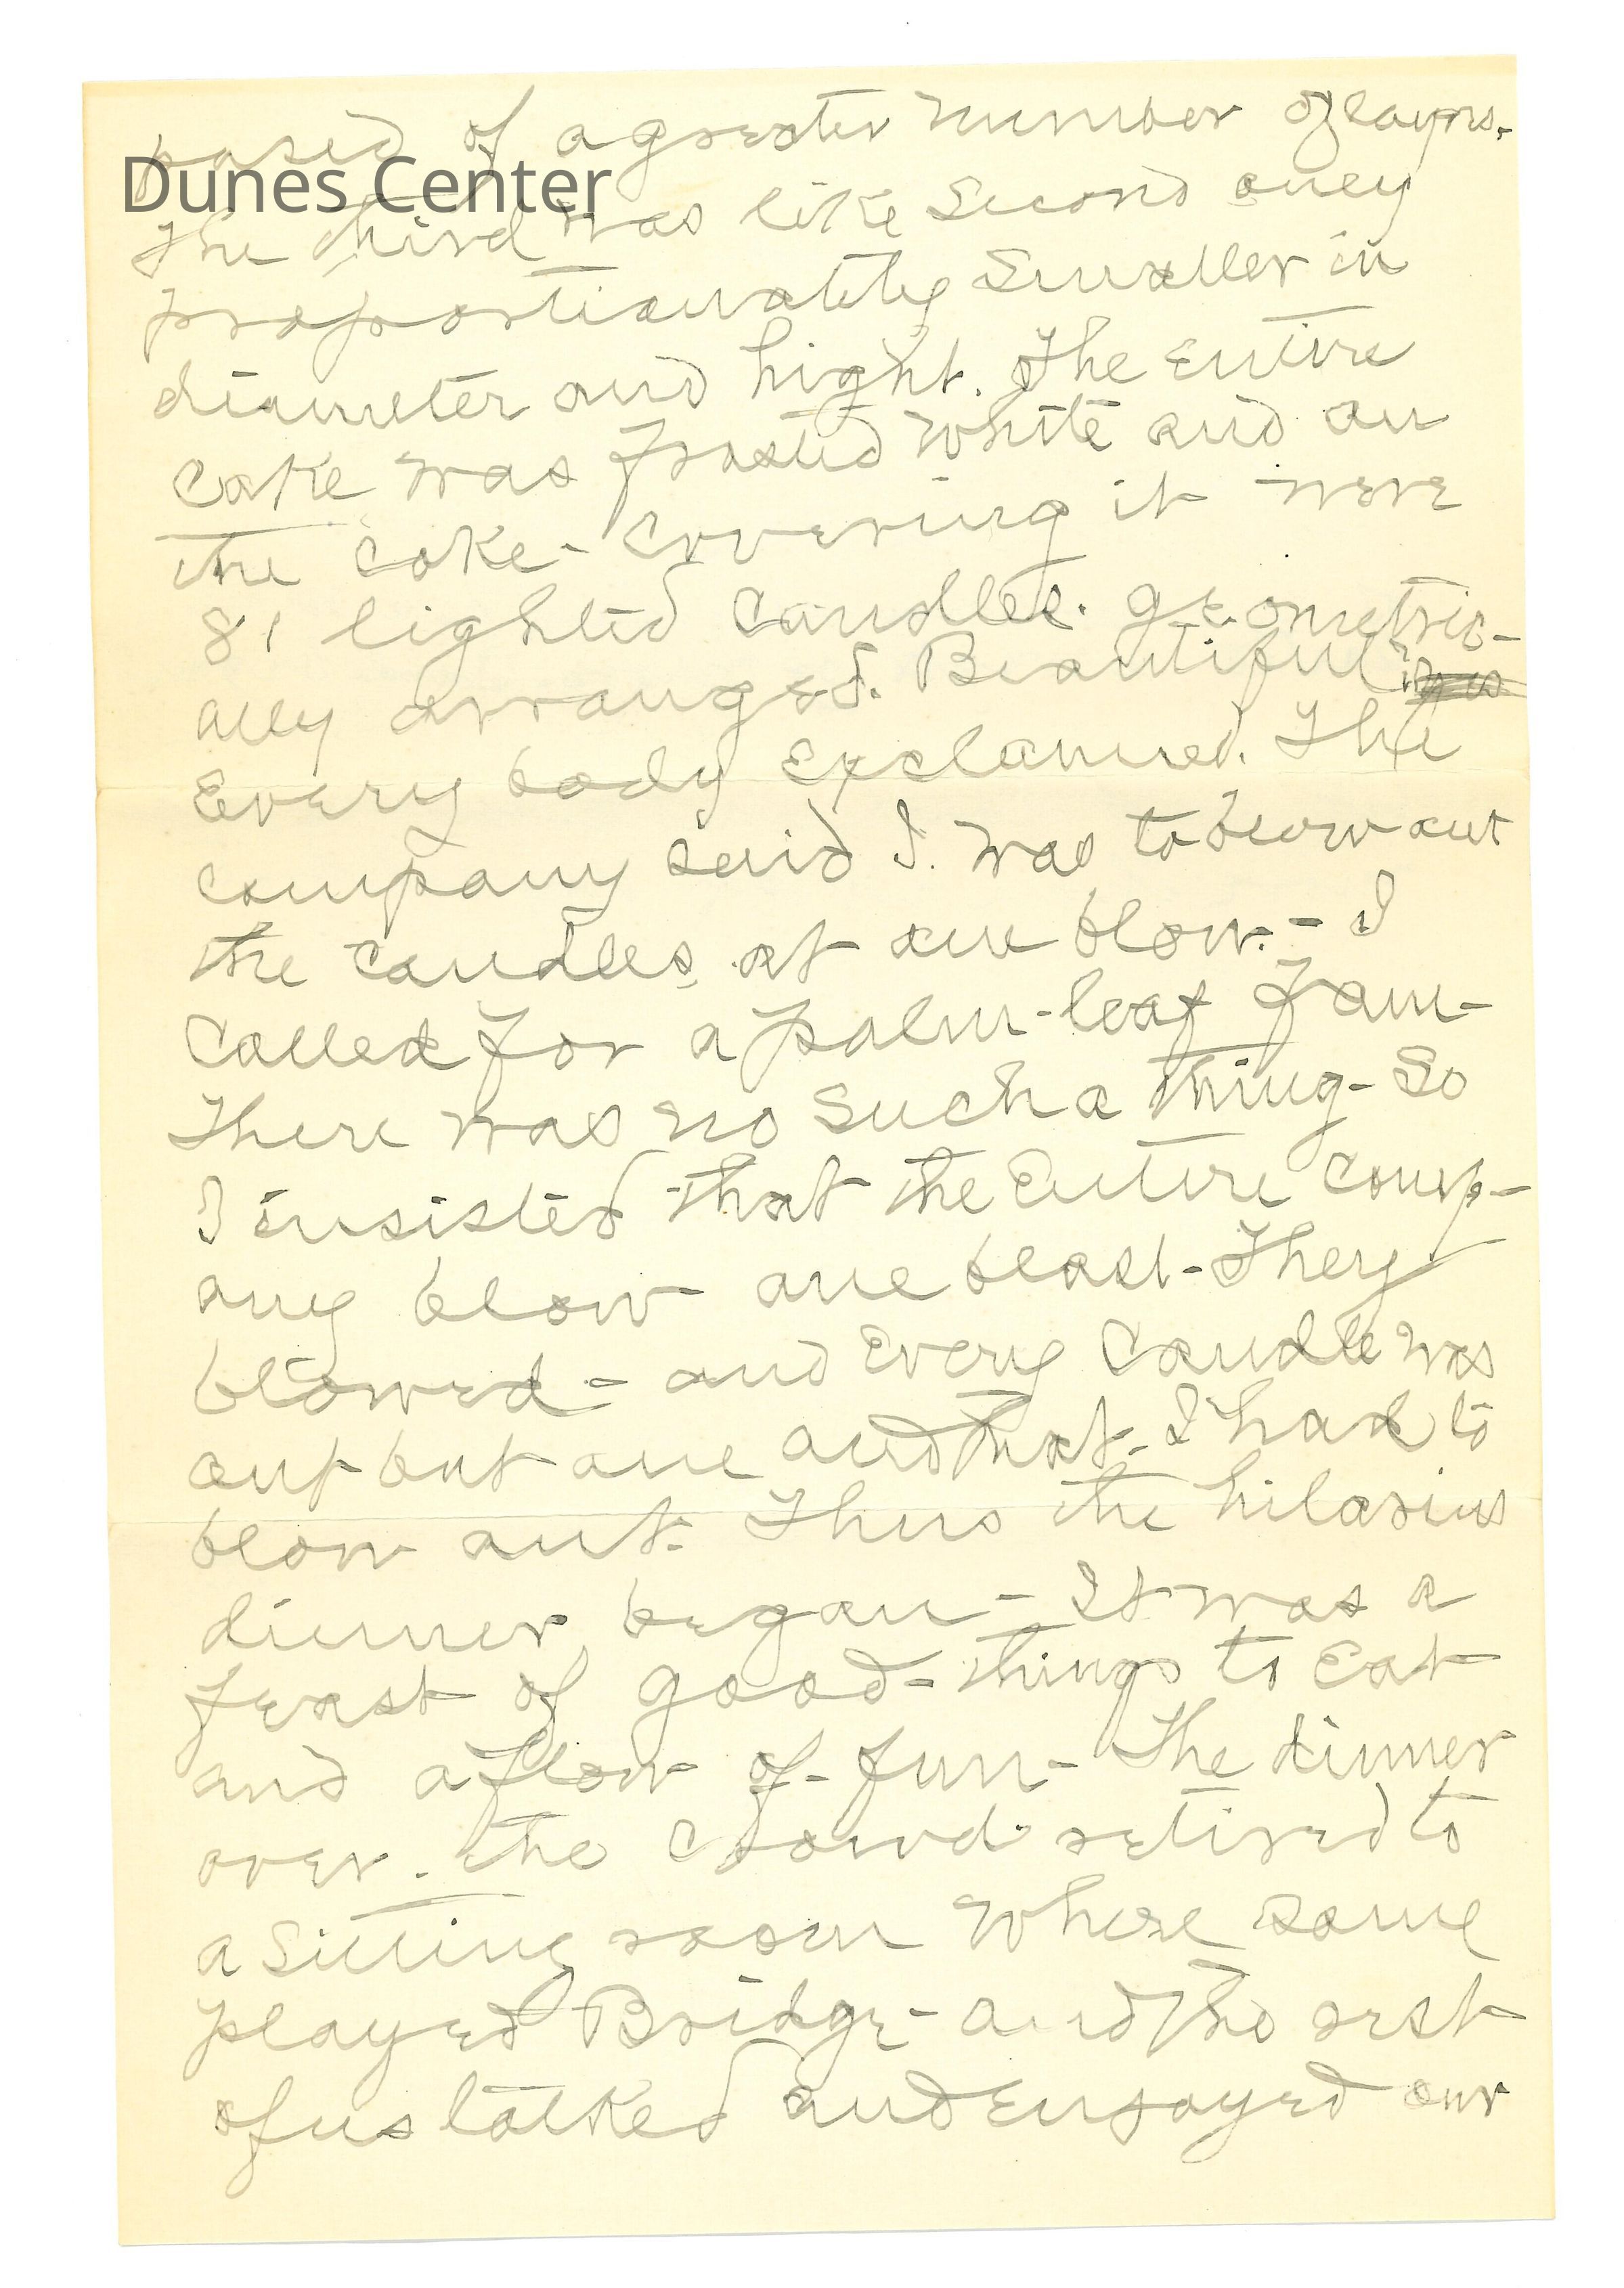 posed of a greater number of layers.
Dunes Center
The third was like Second only
proportionatly Smaller in
diameter and hight. The entire
cake was frosted white and on
the cake - covering it were
81 lighted candles. geometric-
ally arranged. Beautiful!
Every body exclaimed. The
company said I. was to blow out
the candles at one blow. - I
called for a palm-leaf fan -
There was no such a thing - So
I insisted that the Entire comp-
any blow one blast - They
blowed - and Every Candle was
out but one and that I had to
blow out. Thus the hilarius
dinner began - It was a
feast of good - things to Eat
and a flow of - fun - The dinner
over. the crowd retired to
a Sitting room Where some
played Bridge - and the rest
of us talked and Enjoyed our